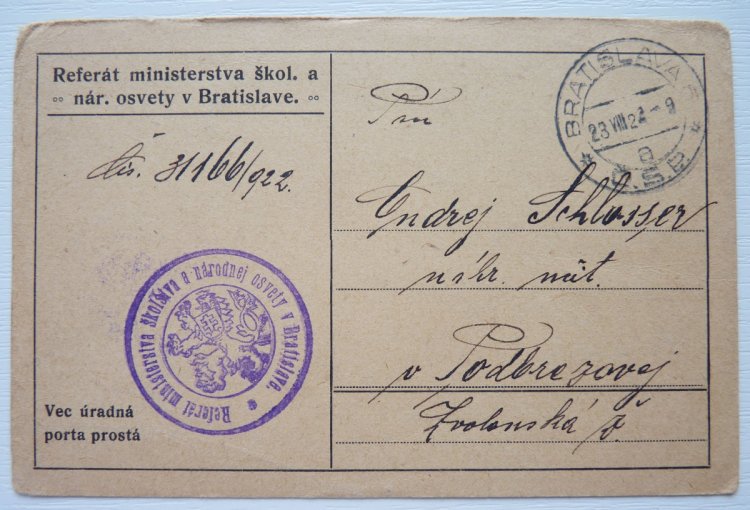 Referát ministerstva škol. a
nár. osvety v Bratislave.
Čís. 31166/922.
Vec úradná
porta prostá
Referát ministerstva školstva a národnej osvety v Bratislave.
BRATISLAVA
23 VIII 22 - 9
Č.S.P.
Pán
Ondrej Schlosser
v Podbrezovej
Zvolenská ž.